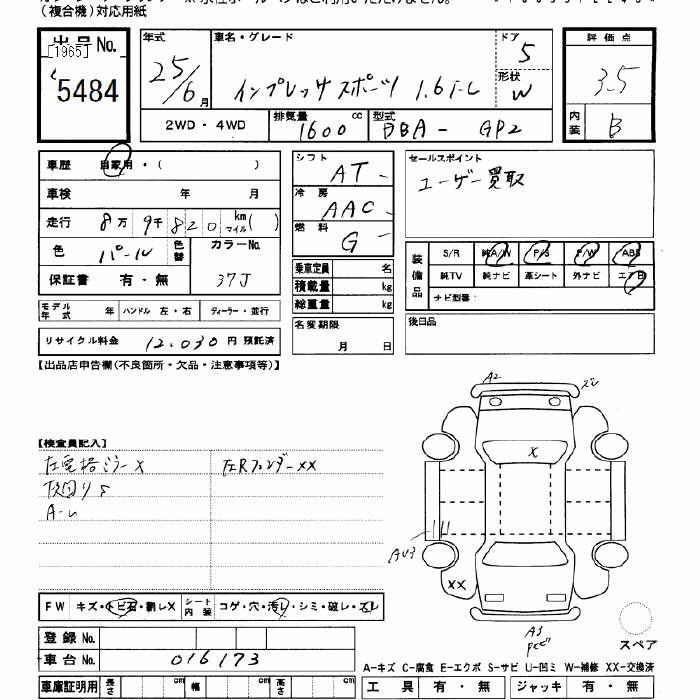 (複合機)対応用紙
出品No. [1965] 5484
年式 25/6月
車名・グレード インプレッサスポーツ 1.6i-L
ドア 5
形状 W
評価点 3.5
内装 B
2WD・4WD
排気量 1600 cc
型式 DBA - GP2
車歴 自家用・( )
車検 年 月
走行 8万 9千 820 km マイル( )
色 パール 色替
カラーNo. 37J
保証書 有・無
モデル年式 年 ハンドル 左・右 ディーラー・並行
リサイクル料金 12,030 円 預託済
シフト AT
冷房 AAC
燃料 G
乗車定員 名
積載量 kg
総重量 kg
名変期限 月 日
セールスポイント
ユーザー買取
装備品 S/R 純A/W P/S P/W ABS
純TV 純ナビ 革シート 外ナビ エアB
ナビ型番:
後日品
【出品店申告欄(不良箇所・欠品・注意事項等)】
【検査員記入】
左電格ミラーX 左Rフェンダー XX
A-L
A2
X
AU3
XX
A3
FW キズ・トビ石・割レX シート内装 コゲ・穴・汚レ・シミ・破レ・スレ
登録No.
車台No. 016173
車庫証明用 長さ cm 幅 cm 高さ cm
スペア
A-キズ C-腐食 E-エクボ S-サビ U-凹ミ W-補修 XX-交換済
工具 有・無 ジャッキ 有・無